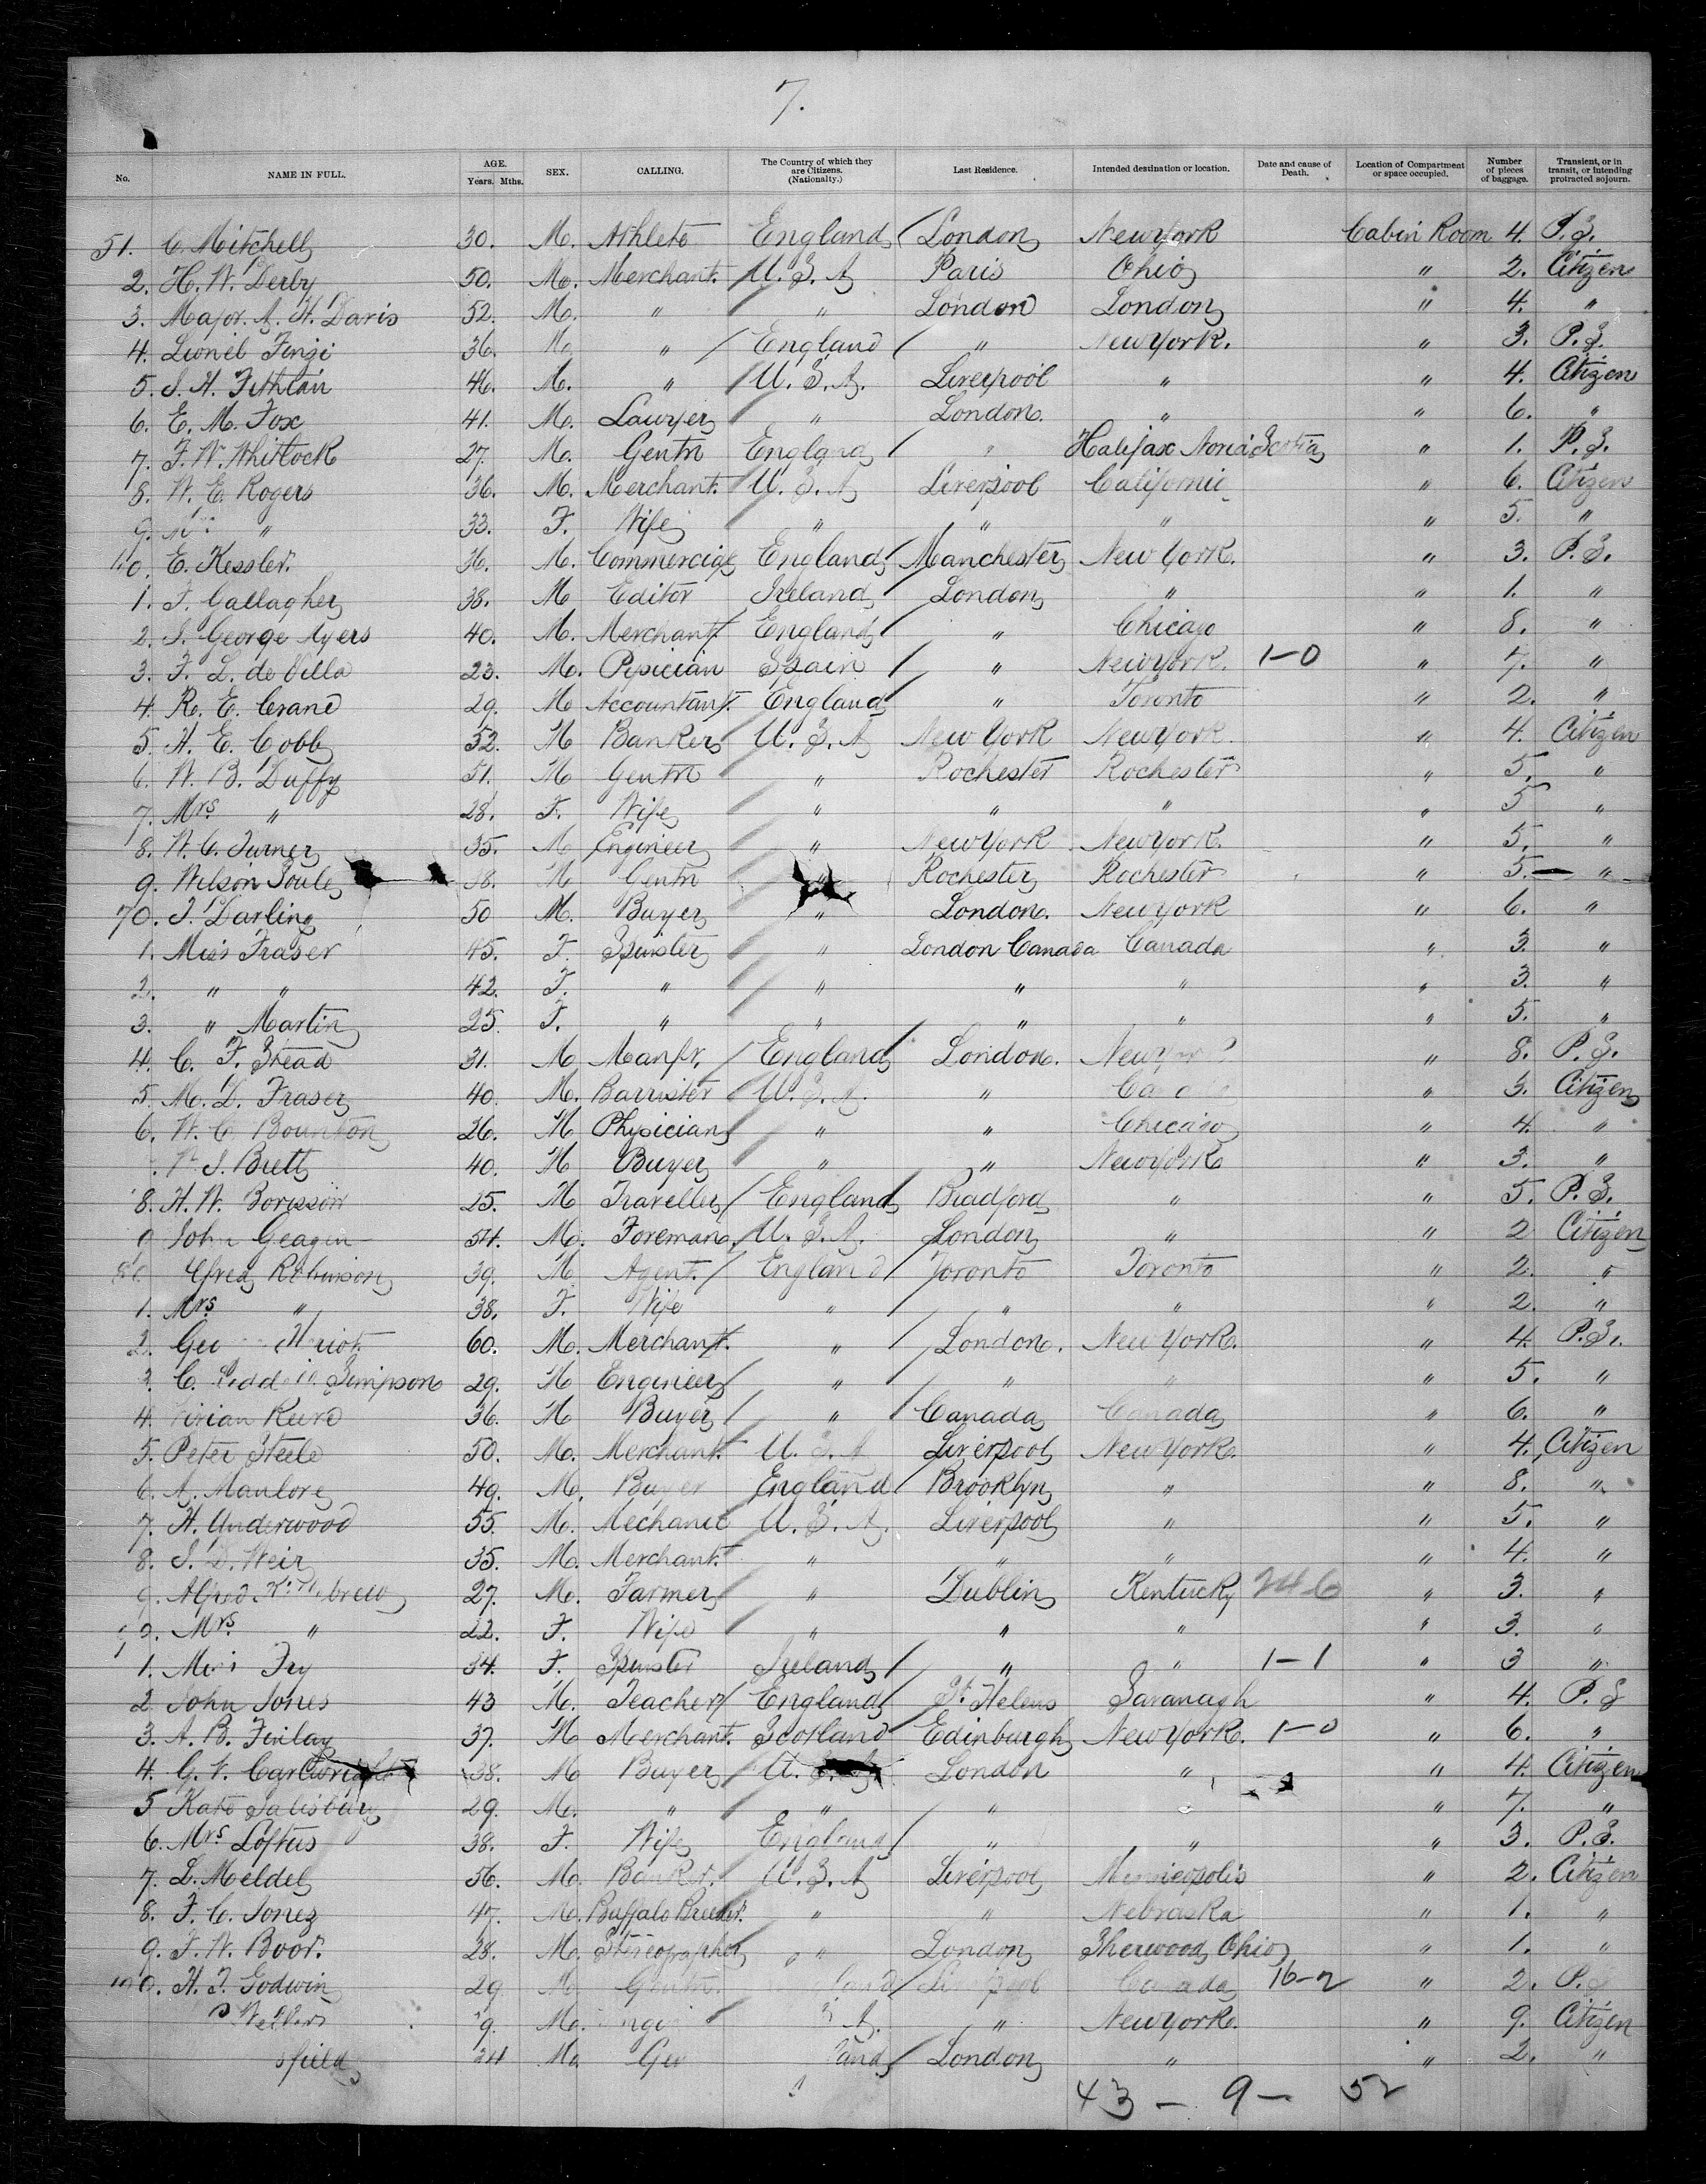 7.
No. NAME IN FULL. AGE. Years. Mths. SEX. CALLING. The Country of which they are Citizens. (Nationalty.) Last Residence. Intended destination or location. Date and cause of Death. Location of Compartment or space occupied. Number of pieces of baggage. Transient, or in transit, or intending protracted sojourn.
51. C. Mitchell 30. M. Athlete England London New York Cabin Room 4. P.S.
2. H. W. Derby 50. M. Merchant. U.S.A Paris Ohio " 2. Citizen
3. Major. A. H. Davis 52. M. " " London London " 4. "
4. Lionel 36. M. " England " New York. " 3. P.S.
5. S. H. Fithian 46. M. " U.S.A. Liverpool " " 4. Citizen
6. E. M. Fox 41. M. Lawyer " London. " " 6. "
7. F. W. Whitlock 27. M. Gentn England " Halifax Nova Scotia " 1. P.S.
8. W. E. Rogers 36. M. Merchant. U.S.A Liverpool " 6. Citizen
9. " 33. F. Wife " " " " 5. "
0. E. Kessler. 36. M. Commercial England Manchester New York. " 3. P.S.
1. F. Gallagher 38. M Editor Ireland London " " 1. "
2. S. George Ayers 40. M. Merchant England " Chicago " 8. "
3. F. L. de Villa 23. M. Pysician Spain " New York. 1-0 " 7. "
4. R. E. Crane 29. M Accountant. England " Toronto " 2. "
5. H. E. Cobb 52. M Banker U.S.A New York New York. " 4. Citizen
6. W. B. Duffy 51. M Gentn " Rochester Rochester " 5. "
7. Mrs " 28. F. Wife " " " " 5 "
8. W. C. Turner 35. M Engineer " New York New York. " 5. "
9. Wilson Soule 38. M Gentn " Rochester Rochester " 5. "
70. J. Darling 50 M. Buyer " London. New York " 6. "
1. Miss Fraser 45. F. Spinster " London Canada Canada " 3. "
2. " " 42. F. " " " " " 3. "
3. " Martin 25. F. " " " " " 5. "
4. C. F. Stead 31. M Manfr. England London. New " 8. P.S.
5. M. D. Fraser 40. M. Barrister U.S.A. " " 3. Citizen
6. W. C. 26. M Physician " " Chicago " 4. "
Brett 40. M Buyer " " New York " 3. "
8. H. W. 25. M Traveller England Bradford " " 5. P.S.
9 John 54. M. Foreman. U.S.A. London " " 2 Citizen
80. Robinson 39. M Agent. England Toronto Toronto " 2. "
1. Mrs " 38. F. Wife " " " " 2. "
2. 60. M. Merchant. " London. New York. " 4. P.S.
3. C. Simpson 29. M Engineer " " " " 5. "
4. 36. M Buyer " Canada Canada " 6. "
5. Peter Steele 50. M. Merchant. U.S.A Liverpool New York. " 4. Citizen
6. A. 49. M. Buyer England Brooklyn " " 8. "
7. H. Underwood 55. M. Mechanic U.S.A. Liverpool " " 5. "
8. S. D. Weir 35. M. Merchant. " " " " 4. "
9. Alfred 27. M. Farmer " Dublin Kentucky 24-6 " 3. "
Mrs " 22. F. Wife " " " " 3. "
1. Miss Fry 34. F. Spinster Ireland " " 1-1 " 3 "
2. John Jones 43 M. Teacher England St. Helens Savanagh " 4. P.S
3. A. B. Finlay 37. M Merchant. Scotland Edinburgh New York. 1-0 " 6. "
4. G. Cartwright 38. M Buyer U. London " " 4. Citizen
5 Kate Salisbury 29. M. " " " " 7. "
6. Mrs Loftus 38. F. Wife England " " " 3. P.S.
7. L. Meldel 56. M. Banker. U.S.A Liverpool " 2. Citizen
8. F. C. Jones 47. M. Buffalo Breeder. " " Nebraska " 1. "
9. F. W. Boor. 28. M. " London Sherwood Ohio " 1. "
0. H. J. Godwin 29 M Canada 16-2 " 2. P.S
M. A. " New York. " 9. Citizen
sfield 24 M. London " " 2. "
43 - 9 - 52